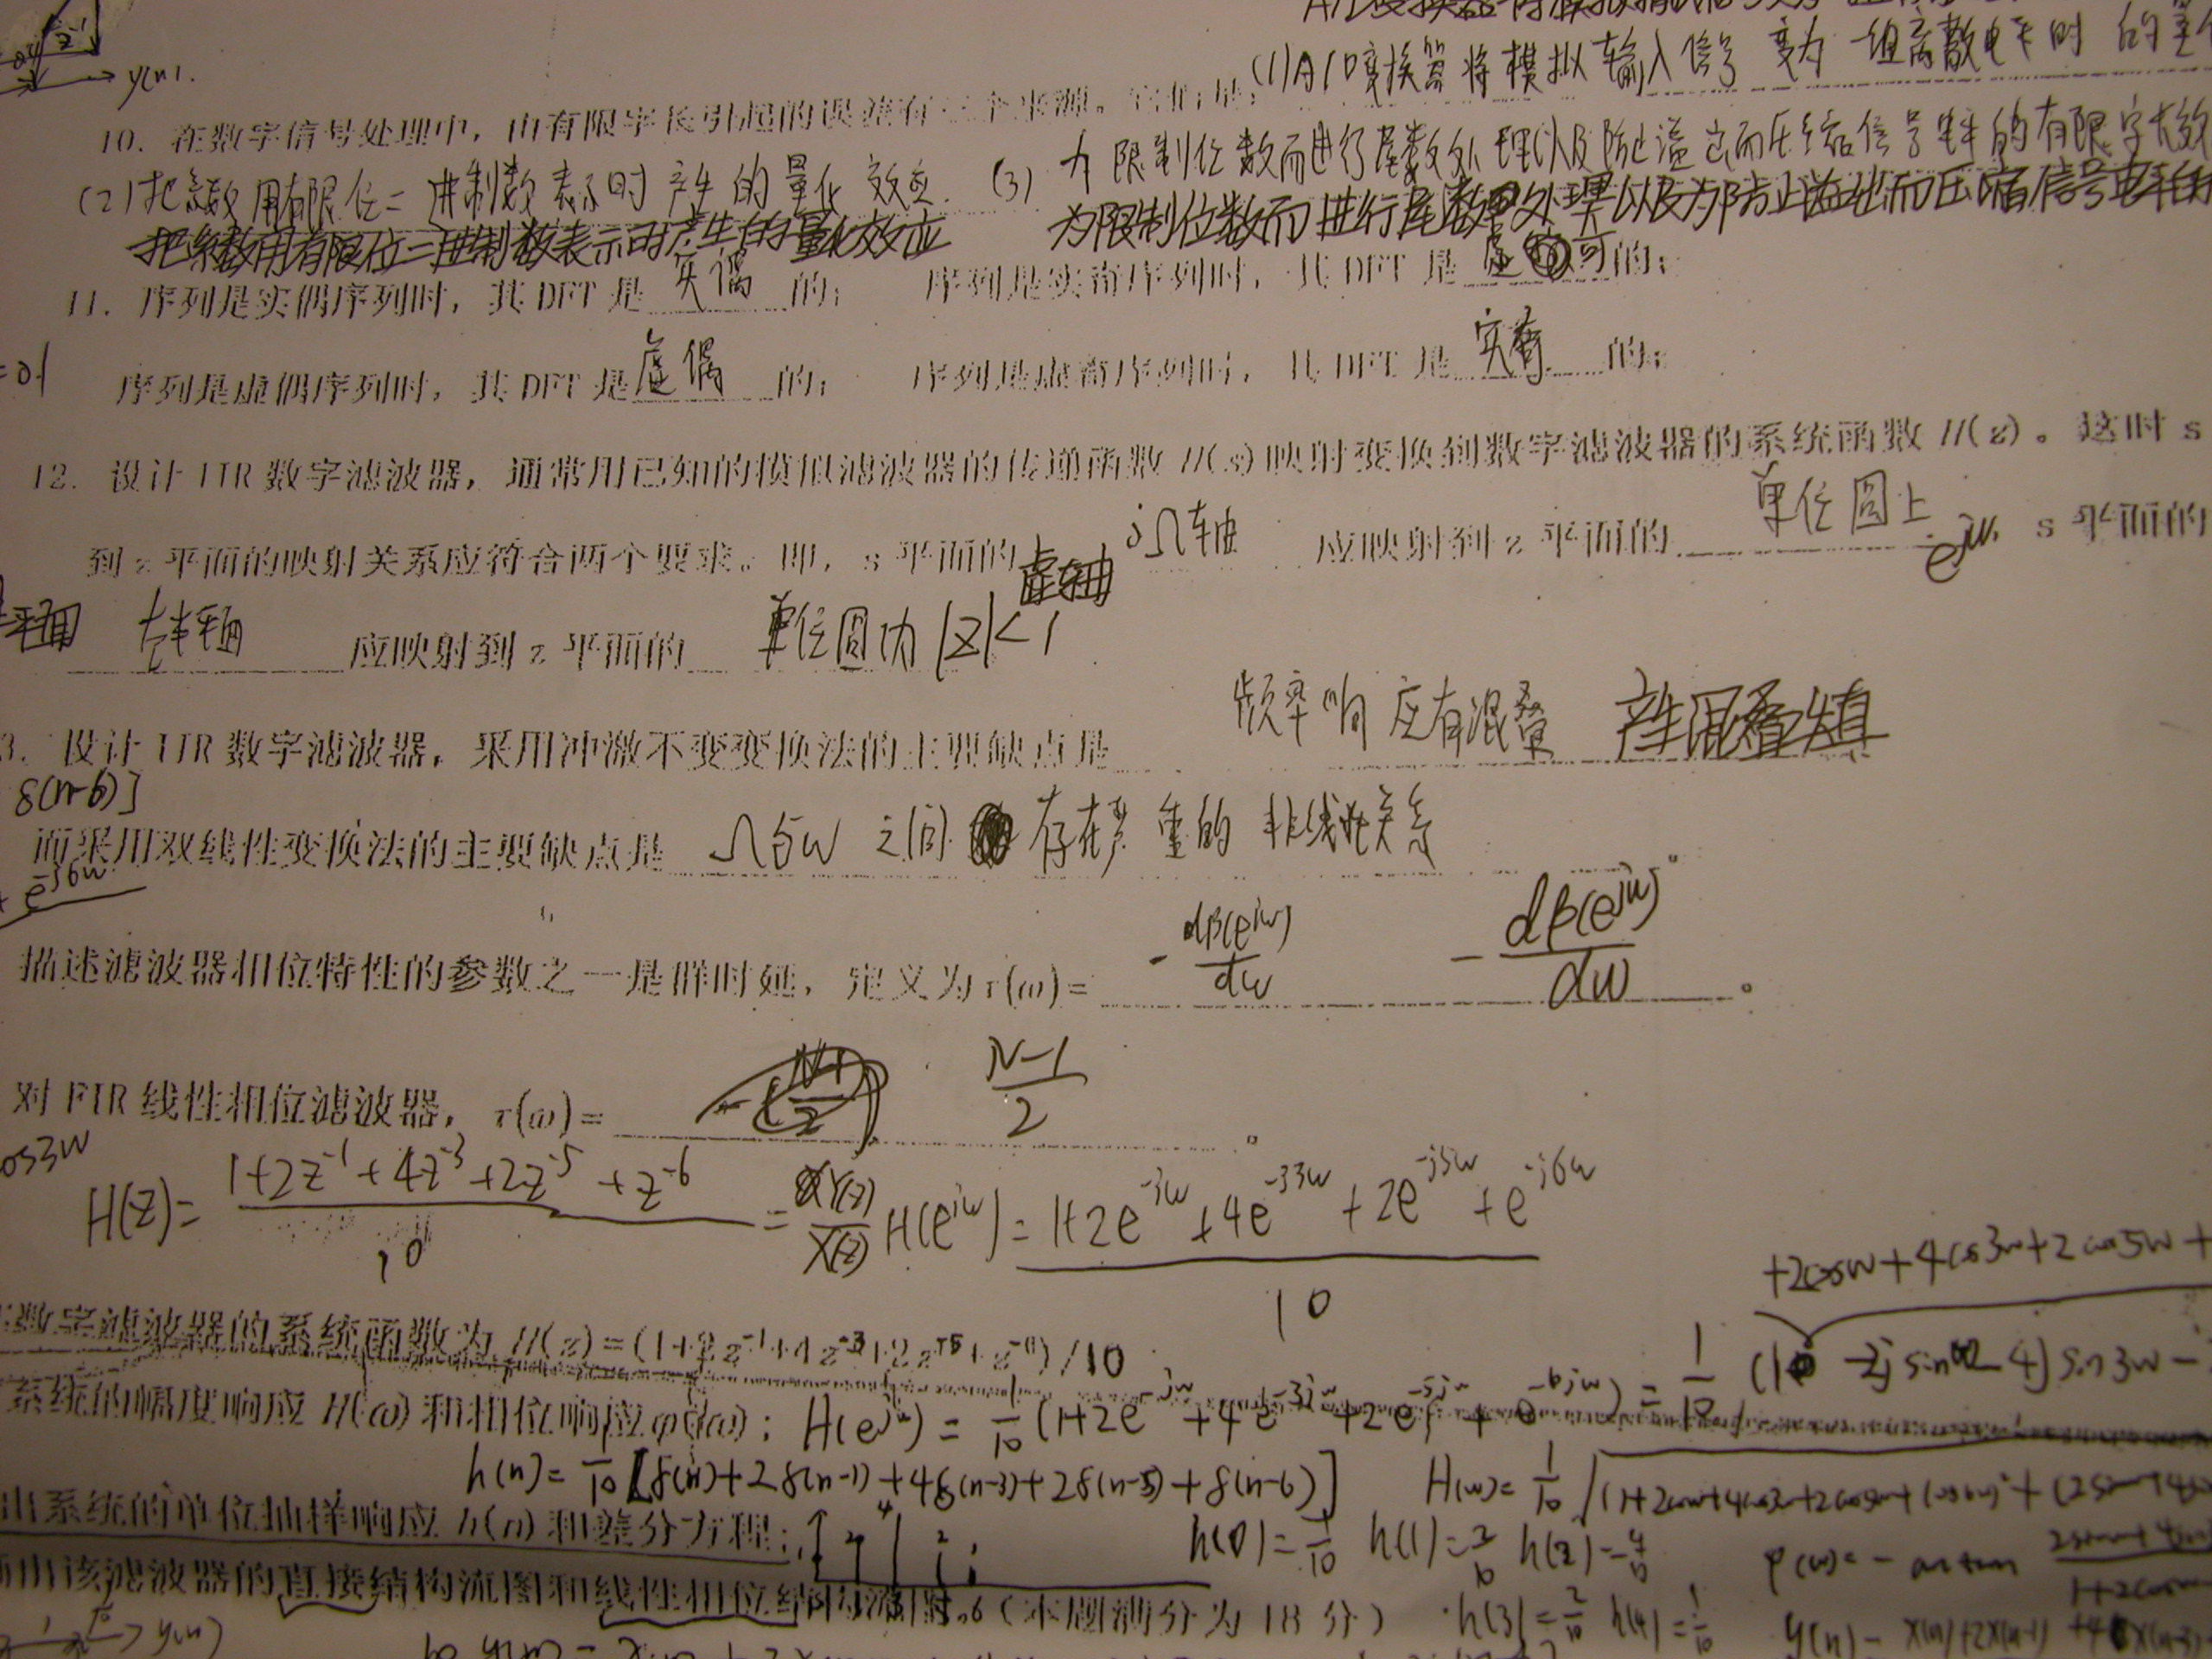 y(n).
(1)A/D变换器将模拟输入信号变为一组离散电平时的量化
10. 在数字信号处理中，由有限字长引起的误差有三个来源。它们是:
(2)把系数用有限位二进制数表示时产生的量化效应. (3) 为限制位数而进行尾数处理以及防止溢出而压缩信号电平的有限字长效
把系数用有限位二进制数表示时产生的量化效应 为限制位数而进行尾数处理以及为防止溢出而压缩信号电平
11. 序列是实偶序列时，其DFT是 实偶 的； 序列是实奇序列时，其DFT是 虚奇 的；
序列是虚偶序列时，其DFT是 虚偶 的； 序列是虚奇序列时，其DFT是 实奇 的；
12. 设计IIR数字滤波器，通常用已知的模拟滤波器的传递函数H(s)映射变换到数字滤波器的系统函数H(z)。这时s
到z平面的映射关系应符合两个要求。即，s平面的 虚轴 jΩ轴 应映射到z平面的 单位圆上 e^jw, s平面的
左半平面 应映射到z平面的 单位圆内 |z|<1
3. 设计IIR数字滤波器，采用冲激不变变换法的主要缺点是 频率响应有混叠 产生混叠失真
δ(n-6)]
而采用双线性变换法的主要缺点是 Ω与w之间存在严重的非线性关系
e^-j6w
描述滤波器相位特性的参数之一是群时延，定义为τ(ω)= -dβ(e^jw)/dw -dβ(e^jw)/dw 。
对FIR线性相位滤波器，τ(ω)= -(N-1)/2 (N-1)/2 。
os3w
H(z)= (1+2z^-1+4z^-3+2z^-5+z^-6)/10 = Y(z)/X(z) H(e^jw)= (1+2e^-jw+4e^-j3w+2e^-j5w+e^-j6w)/10
+2cosw+4cos3w+2cos5w+
数字滤波器的系统函数为H(z)=(1+2z^-1+4z^-3+2z^-5+z^-6)/10
系统的幅度响应H(ω)和相位响应φ(ω); H(e^jw)= 1/10 (1+2e^-jw+4e^-3jw+2e^-5jw+e^-6jw) = 1/10
h(n)= 1/10 [δ(n)+2δ(n-1)+4δ(n-3)+2δ(n-5)+δ(n-6)]
出系统的单位抽样响应h(n)和差分方程; h(0)=1/10 h(1)=2/10 h(2)=4/10
出该滤波器的直接结构流图和线性相位结构流图。(本题满分为18分) h(3)=2/10 h(4)=1/10
y(n)